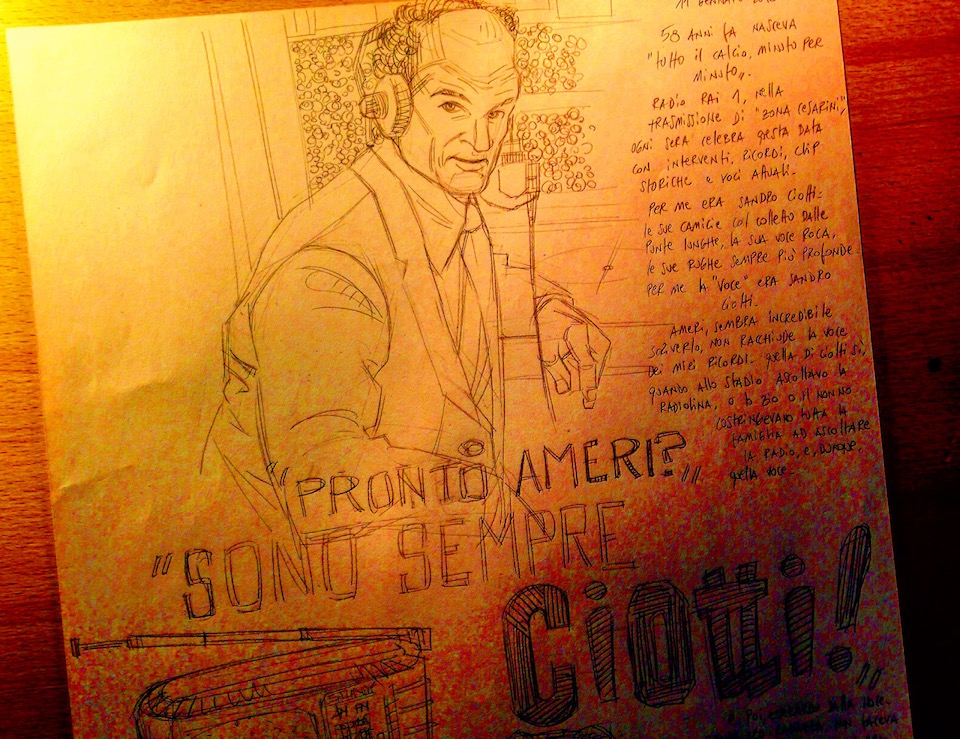 11 GENNAIO
58 ANNI FA NASCEVA
"TUTTO IL CALCIO, MINUTO PER
MINUTO".
RADIO RAI 1, NELLA
TRASMISSIONE DI "ZONA CESARINI",
OGNI SERA CELEBRA QUESTA DATA
CON INTERVENTI, RICORDI, CLIP
STORICHE E VOCI ATTUALI.
PER ME ERA SANDRO CIOTTI:
LE SUE CAMICIE COL COLLETTO DALLE
PUNTE LUNGHE, LA SUA VOCE ROCA,
LE SUE RUGHE SEMPRE PIÙ PROFONDE
PER ME LA "VOCE" ERA SANDRO
CIOTTI.
AMERI, SEMBRA INCREDIBILE
SCRIVERLO, NON RACCHIUDE LA VOCE
DEI MIEI RICORDI. QUELLA DI CIOTTI SÌ,
QUANDO ALLO STADIO ASCOLTAVO LA
RADIOLINA, O LO ZIO O IL NONNO
COSTRINGEVANO TUTTA LA
FAMIGLIA AD ASCOLTARE
LA RADIO, E, DUNQUE,
QUELLA VOCE.
"PRONTO AMERI?"
"SONO SEMPRE
CIOTTI!"
DALLA
NON FACEVA